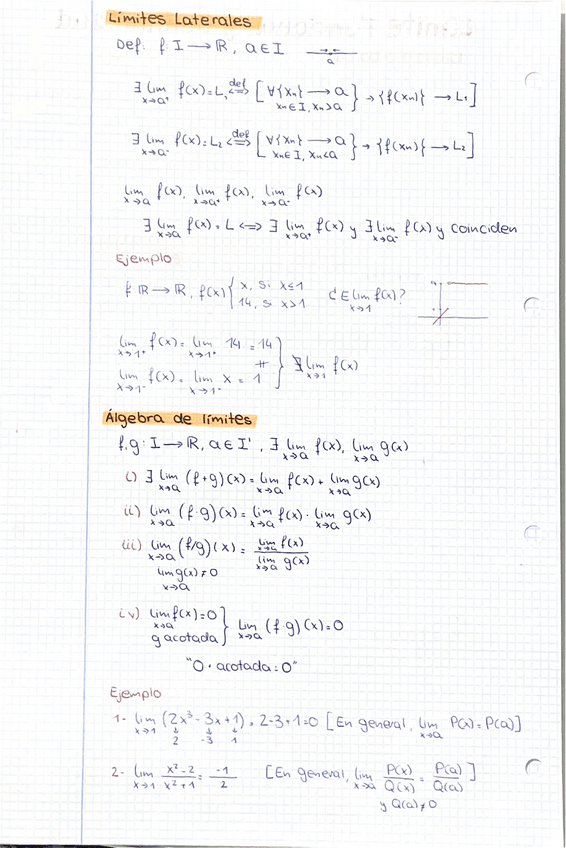 Límites Laterales
Def: f: I → ℝ, a ∈ I →← a
∃ lim x→a⁺ f(x) = L₁ ⟺def [∀{xₙ} → a xₙ∈I, xₙ>a} → {f(xₙ)} → L₁]
∃ lim x→a⁻ f(x) = L₂ ⟺def [∀{xₙ} → a xₙ∈I, xₙ<a} → {f(xₙ)} → L₂]
lim x→a f(x), lim x→a⁺ f(x), lim x→a⁻ f(x)
∃ lim x→a f(x) = L ⟺ ∃ lim x→a⁺ f(x) y ∃ lim x→a⁻ f(x) y coinciden
Ejemplo
f: ℝ → ℝ, f(x) { x, si x≤1 ¿∃ lim x→1 f(x)?
14, si x>1
lim x→1⁺ f(x) = lim x→1⁺ 14 = 14
≠ } ∄ lim x→1 f(x)
lim x→1⁻ f(x) = lim x→1⁻ x = 1
Álgebra de límites
f,g: I → ℝ, a ∈ I', ∃ lim x→a f(x), lim x→a g(x)
i) ∃ lim x→a (f+g)(x) = lim x→a f(x) + lim x→a g(x)
ii) lim x→a (f·g)(x) = lim x→a f(x) · lim x→a g(x)
iii) lim x→a (f/g)(x) = lim x→a f(x) / lim x→a g(x)
lim x→a g(x) ≠ 0
iv) lim x→a f(x) = 0 } lim x→a (f·g)(x) = 0
g acotada
"0 · acotada = 0"
Ejemplo
1- lim x→1 (2x³ - 3x + 1) = 2-3+1=0 [En general, lim x→a P(x) = P(a)]
2 -3 1
2- lim x→1 x²-2 / x²+1 = -1/2 [En general, lim x→a P(x)/Q(x) = P(a)/Q(a)]
y Q(a) ≠ 0